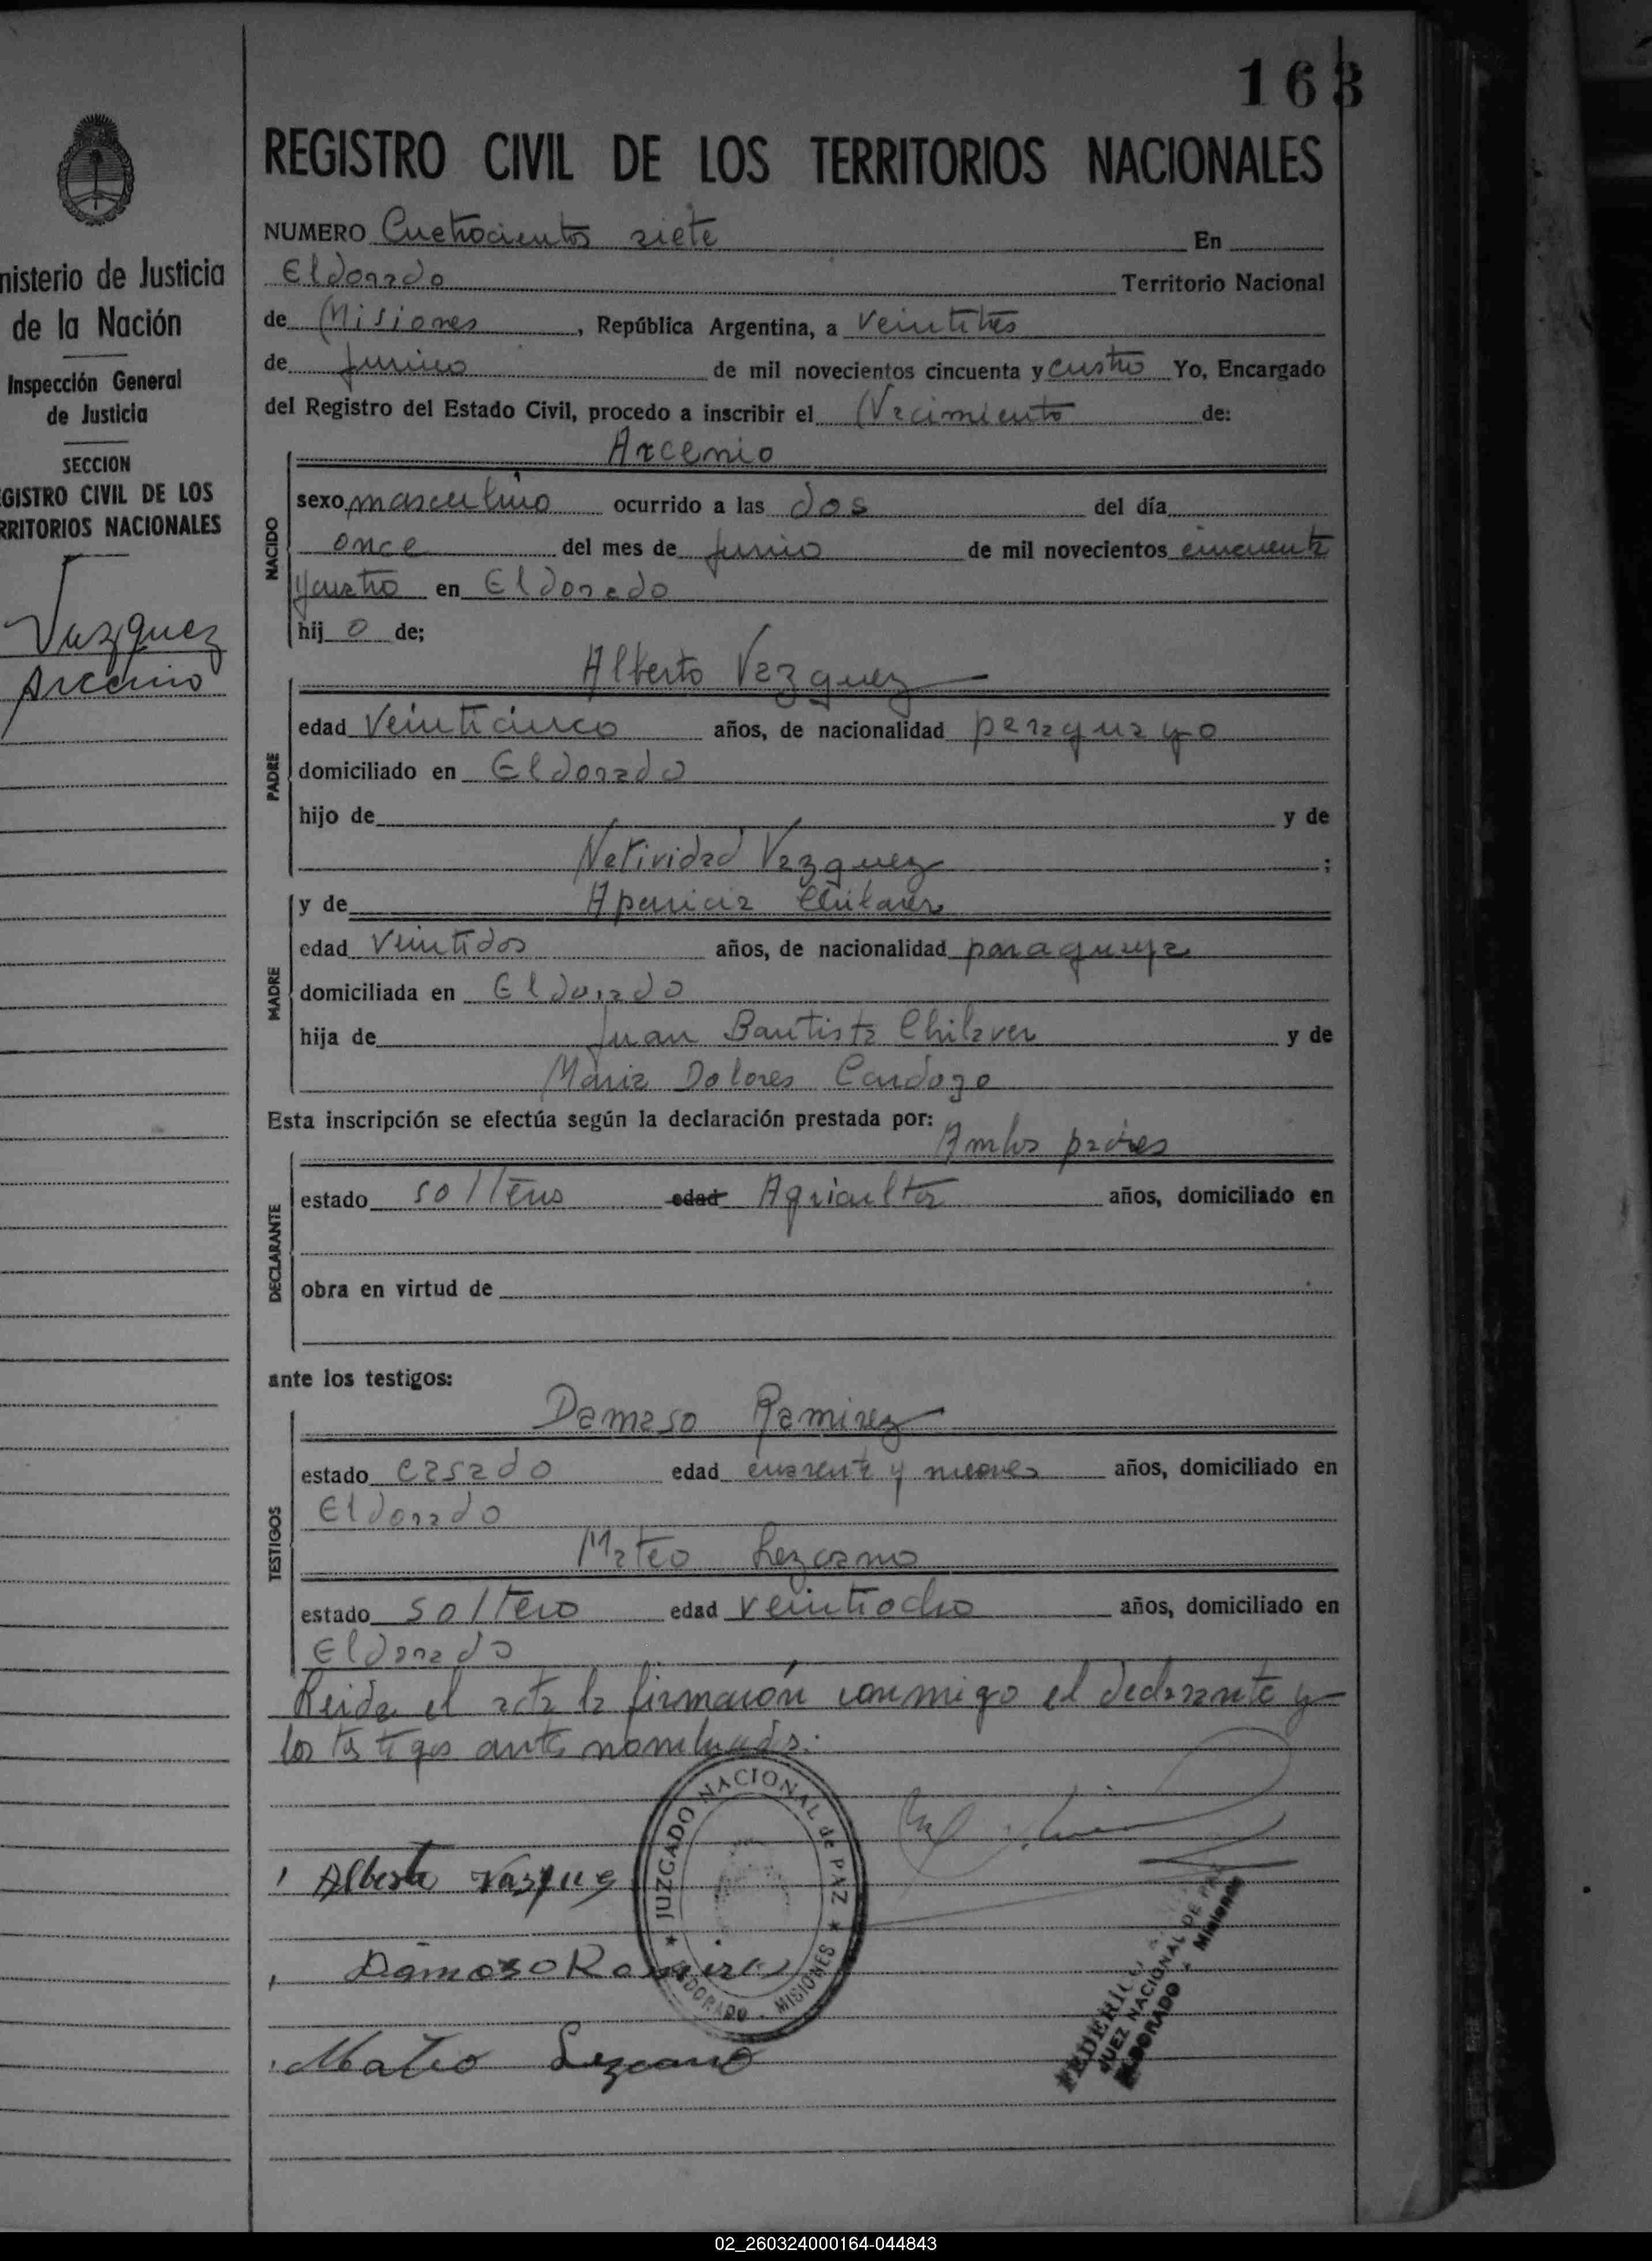 163
REGISTRO CIVIL DE LOS TERRITORIOS NACIONALES
nisterio de Justicia
de la Nación
Inspección General
de Justicia
SECCION
GISTRO CIVIL DE LOS
RRITORIOS NACIONALES
Vazquez
Arcenio
NUMERO Cuatrocientos siete En
Eldorado Territorio Nacional
de Misiones, República Argentina, a veintitres
de Junio de mil novecientos cincuenta y cuatro Yo, Encargado
del Registro del Estado Civil, procedo a inscribir el Nacimiento de:
Arcenio
NACIDO
sexo masculino ocurrido a las dos del día
once del mes de Junio de mil novecientos cincuenta
y cuatro en Eldorado
hij o de;
Alberto Vazquez
PADRE
edad Veinticinco años, de nacionalidad paraguayo
domiciliado en Eldorado
hijo de y de
Natividad Vazquez ;
y de Aparicia Chilaver
MADRE
edad Veintidos años, de nacionalidad paraguaya
domiciliada en Eldorado
hija de Juan Bautista Chilaver y de
Maria Dolores Cardozo
Esta inscripción se efectúa según la declaración prestada por:
Ambos padres
DECLARANTE
estado solteros edad Agricultor años, domiciliado en
obra en virtud de
ante los testigos:
Damaso Ramirez
TESTIGOS
estado casado edad cuarenta y nueve años, domiciliado en
Eldorado
Mateo Lezcano
estado soltero edad veintiocho años, domiciliado en
Eldorado
Leida el acta la firmarón conmigo el declarante y
los testigos ante nombrados.
JUZGADO NACIONAL de PAZ
ELDORADO - MISIONES
Alberto Vazques
Damaso Ramirez
Mateo Lezcano
JUEZ NACIONAL DE PAZ
ELDORADO - Misiones
02_260324000164-044843